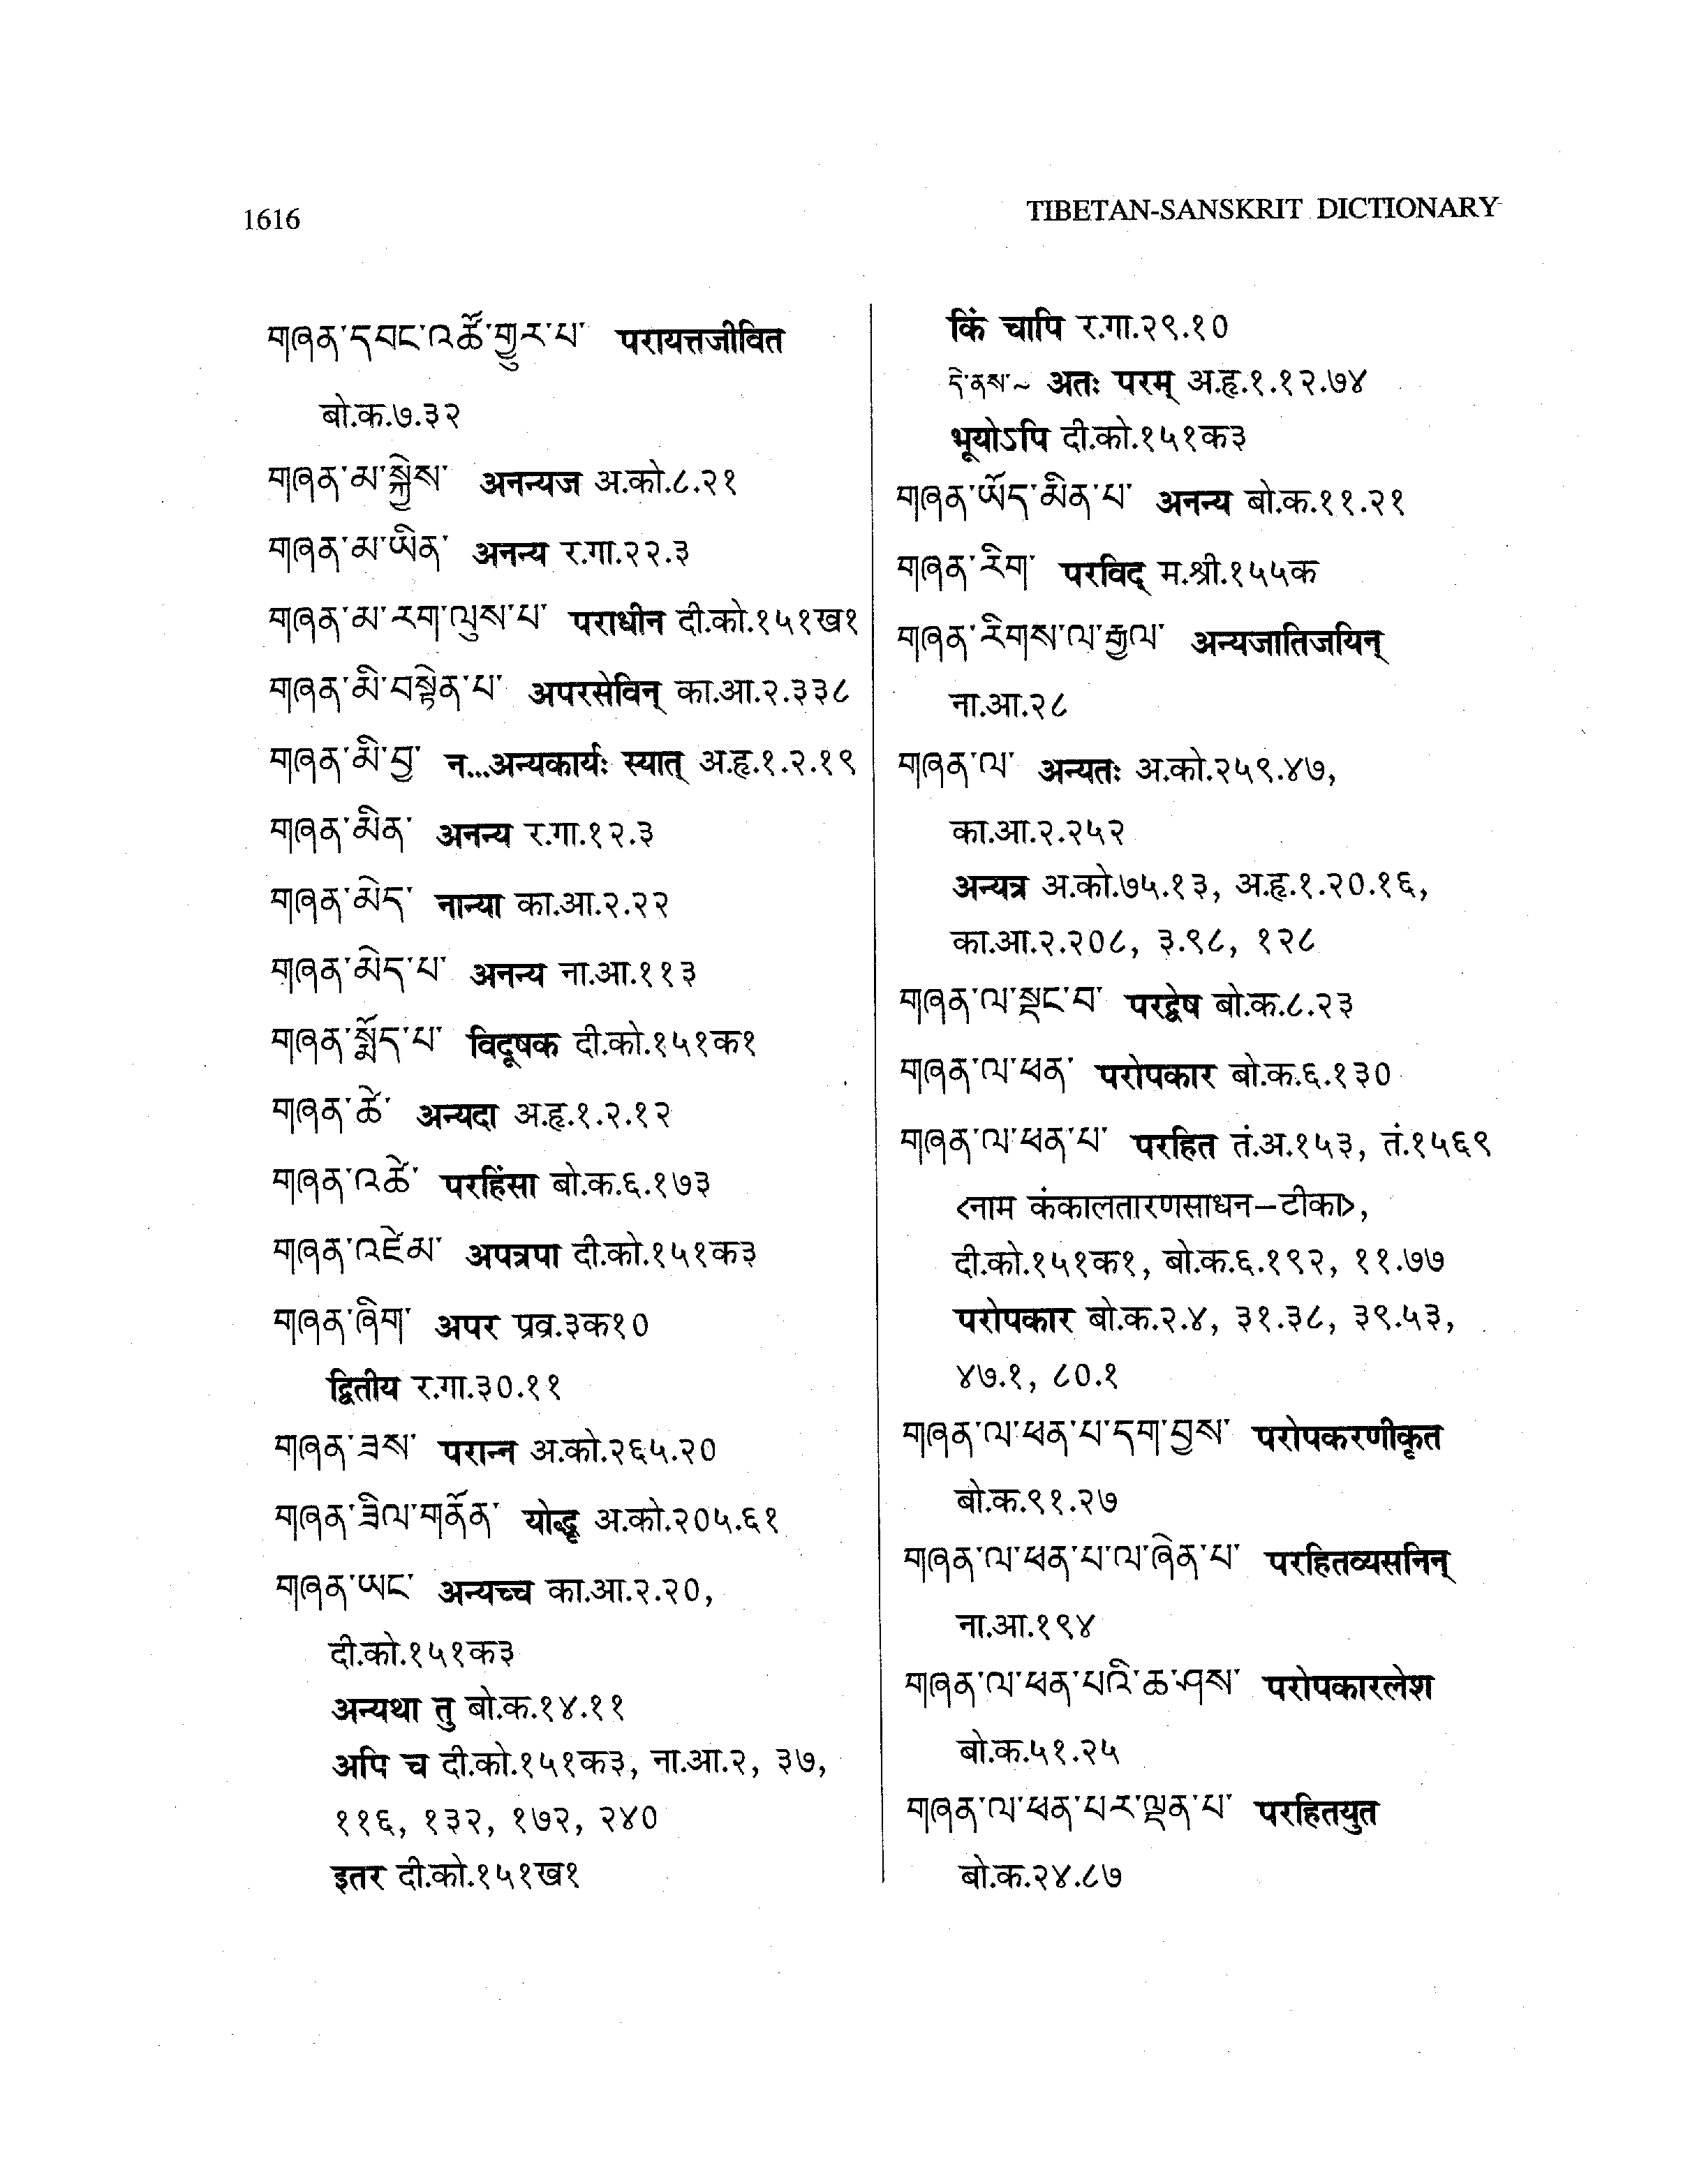 1616
TIBETAN-SANSKRIT DICTIONARY
གཞན་དབང་འཚོ་གྱུར་པ་ परायत्तजीवित
बो.क.७.३२
གཞན་མ་སྐྱེས་ अनन्यज अ.को.८.२१
གཞན་མ་ཡིན་ अनन्य र.गा.२२.३
གཞན་མ་རག་ལུས་པ་ पराधीन दी.को.१५१ख१
གཞན་མི་བསྟེན་པ་ अपरसेविन् का.आ.२.३३८
གཞན་མི་བྱ་ न...अन्यकार्यः स्यात् अ.हृ.१.२.१९
གཞན་མིན་ अनन्य र.गा.१२.३
གཞན་མེད་ नान्या का.आ.२.२२
གཞན་མེད་པ་ अनन्य ना.आ.११३
གཞན་སྨོད་པ་ विदूषक दी.को.१५१क१
གཞན་ཚེ་ अन्यदा अ.हृ.१.२.१२
གཞན་འཚེ་ परहिंसा बो.क.६.१७३
གཞན་འཛེམ་ अपत्रपा दी.को.१५१क३
གཞན་ཞིག་ अपर प्रव्र.३क१०
द्वितीय र.गा.३०.११
གཞན་ཟས་ परान्न अ.को.२६५.२०
གཞན་ཟིལ་གནོན་ योद्धृ अ.को.२०५.६१
གཞན་ཡང་ अन्यच्च का.आ.२.२०,
दी.को.१५१क३
अन्यथा तु बो.क.१४.११
अपि च दी.को.१५१क३, ना.आ.२, ३७,
११६, १३२, १७२, २४०
इतर दी.को.१५१ख१
किं चापि र.गा.२९.१०
དེ་ནས་~ अतः परम् अ.हृ.१.१२.७४
भूयोऽपि दी.को.१५१क३
གཞན་ཡོད་མིན་པ་ अनन्य बो.क.११.२१
གཞན་རིག་ परविद् म.श्री.१५५क
གཞན་རིགས་ལ་རྒྱལ་ अन्यजातिजयिन्
ना.आ.२८
གཞན་ལ་ अन्यतः अ.को.२५९.४७,
का.आ.२.२५२
अन्यत्र अ.को.७५.१३, अ.हृ.१.२०.१६,
का.आ.२.२०८, ३.९८, १२८
གཞན་ལ་སྡང་བ་ परद्वेष बो.क.८.२३
གཞན་ལ་ཕན་ परोपकार बो.क.६.१३०
གཞན་ལ་ཕན་པ་ परहित तं.अ.१५३, तं.१५६९
<नाम कंकालतारणसाधन–टीका>,
दी.को.१५१क१, बो.क.६.१९२, ११.७७
परोपकार बो.क.२.४, ३१.३८, ३९.५३,
४७.१, ८०.१
གཞན་ལ་ཕན་པ་དག་བྱས་ परोपकरणीकृत
बो.क.९१.२७
གཞན་ལ་ཕན་པ་ལ་ཞེན་པ་ परहितव्यसनिन्
ना.आ.१९४
གཞན་ལ་ཕན་པའི་ཆ་ཤས་ परोपकारलेश
बो.क.५१.२५
གཞན་ལ་ཕན་པར་ལྡན་པ་ परहितयुत
बो.क.२४.८७